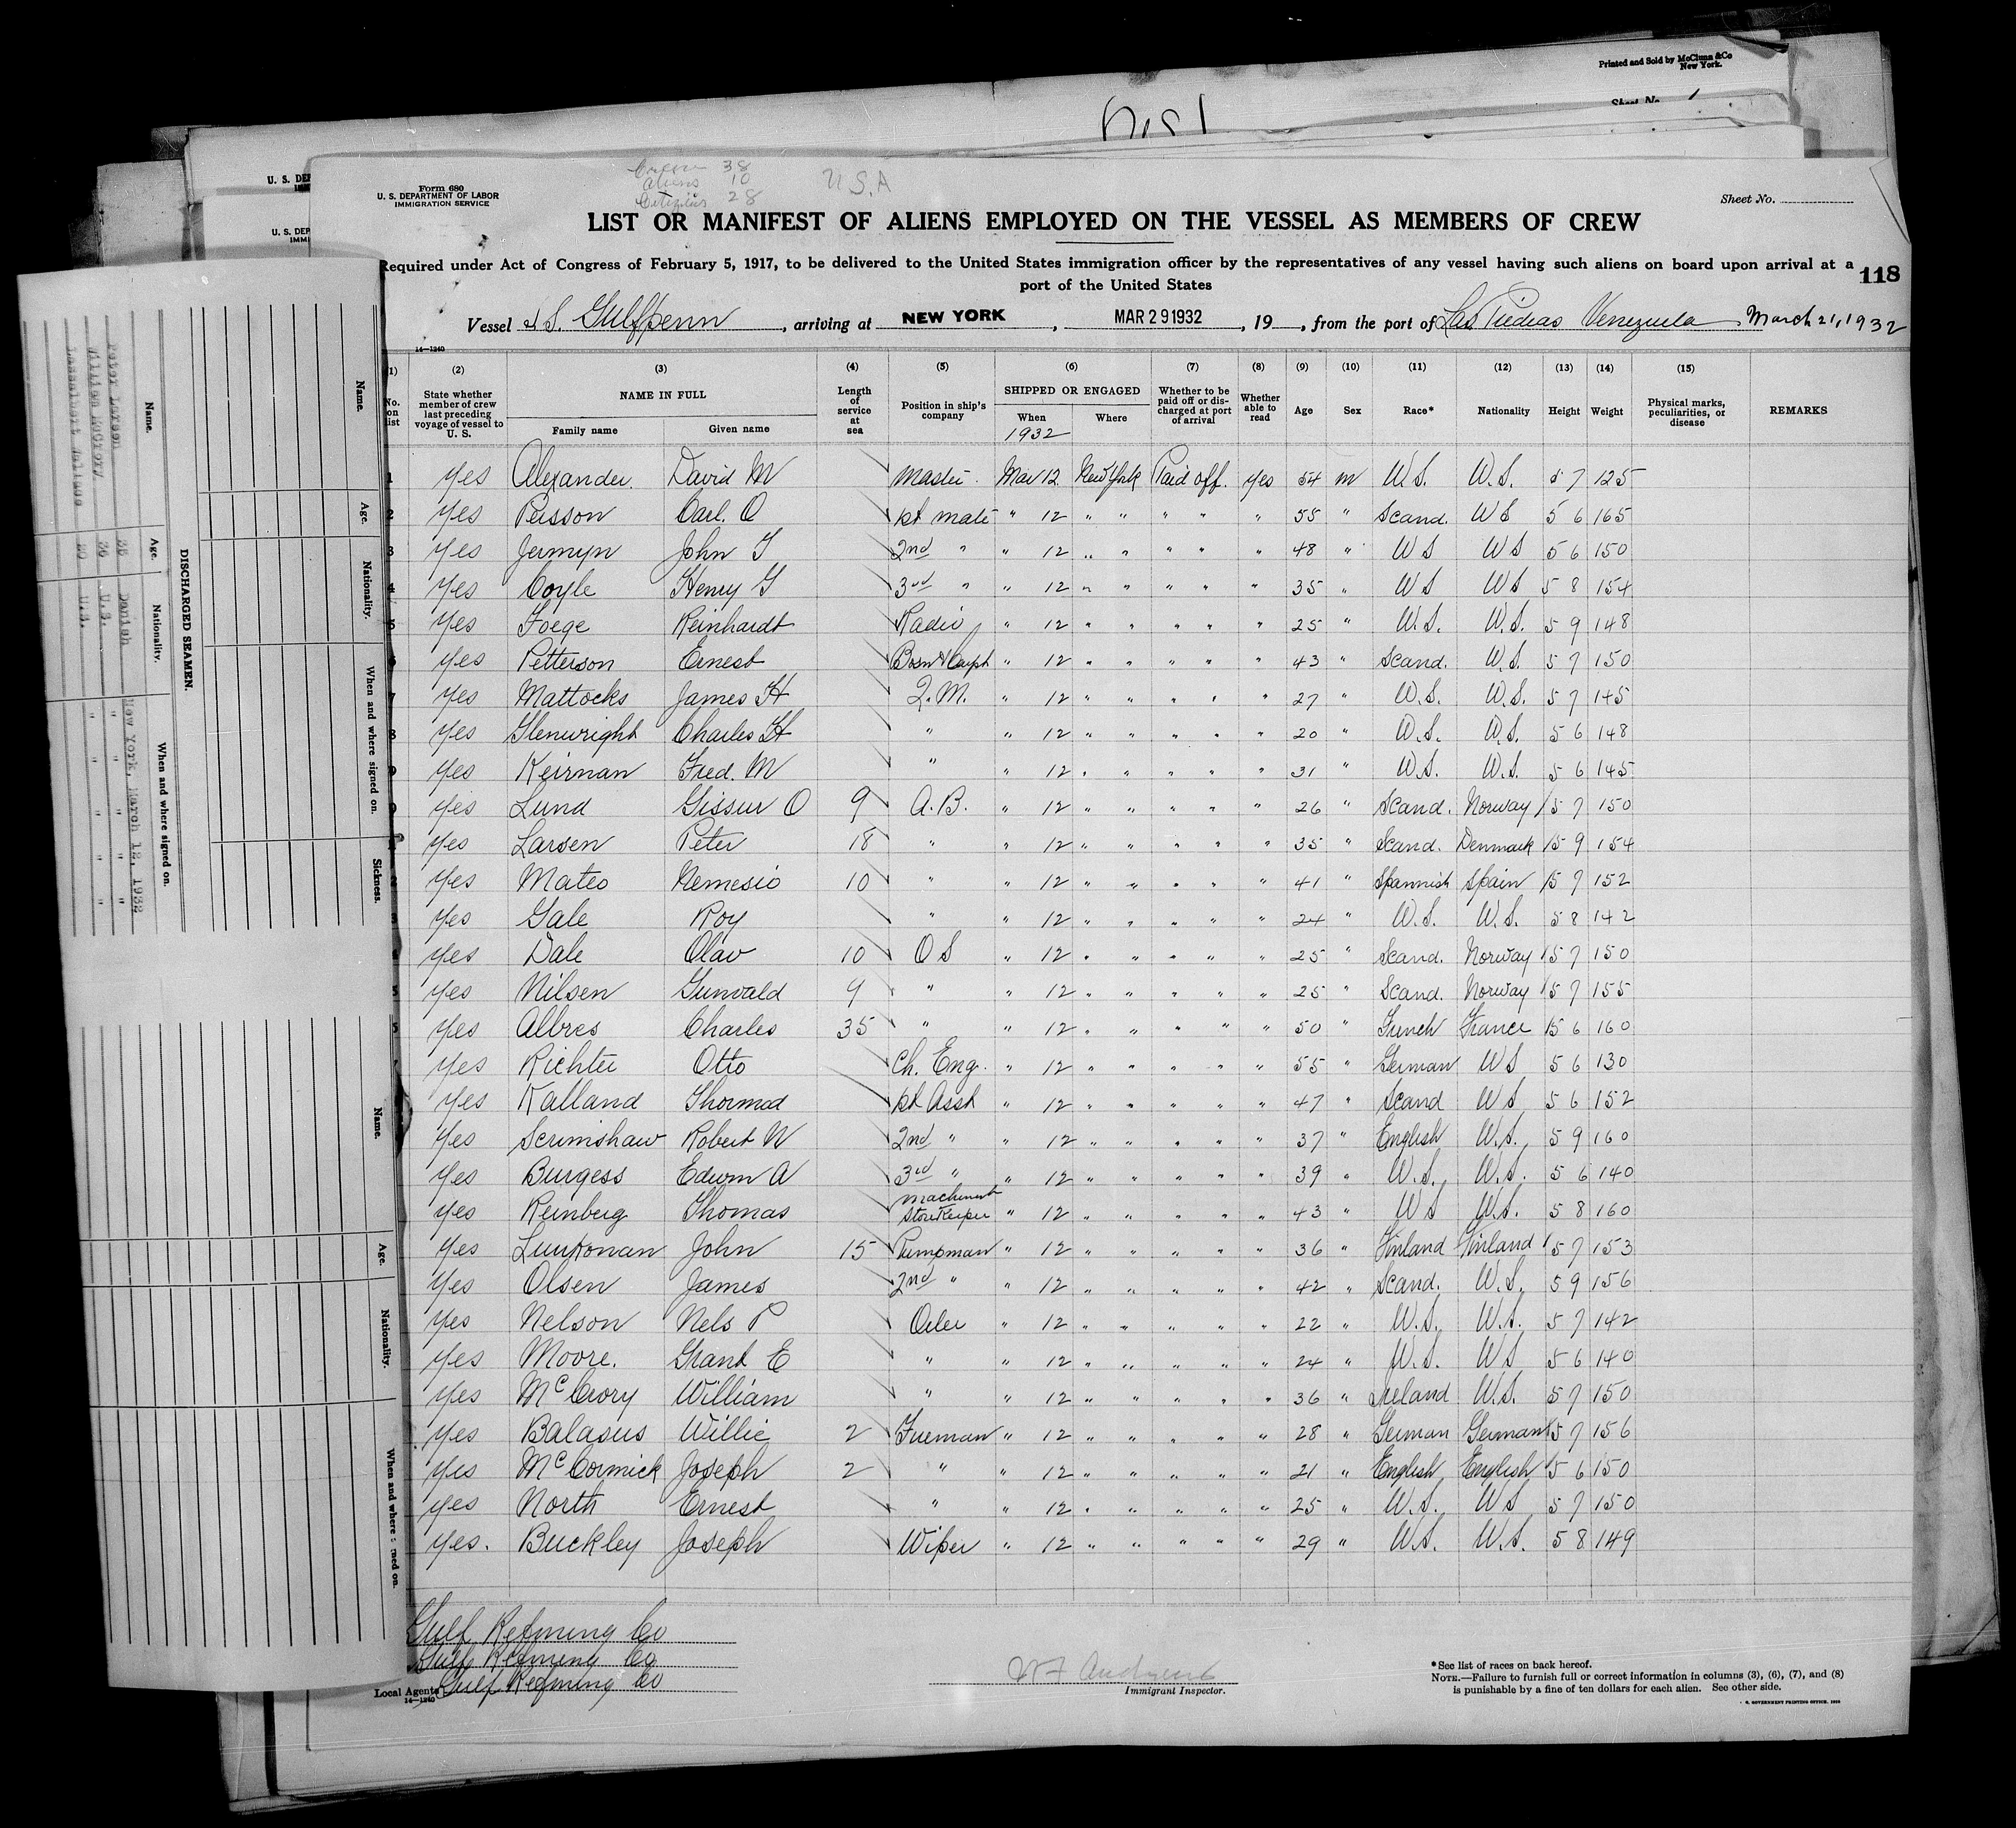 Printed and Sold by McClunn & Co
New York.
Sheet No. 1
U. S. DEP
U. S. DEP
IMMI
Form 680
U. S. DEPARTMENT OF LABOR
IMMIGRATION SERVICE
Crew 38
Aliens 10
Citizens 28
U.S.A
Sheet No.
LIST OR MANIFEST OF ALIENS EMPLOYED ON THE VESSEL AS MEMBERS OF CREW
Required under Act of Congress of February 5, 1917, to be delivered to the United States immigration officer by the representatives of any vessel having such aliens on board upon arrival at a
port of the United States
118
Vessel S.S. Gulfpenn, arriving at NEW YORK, MAR 29 1932, 19, from the port of Las Piedras Venezuela March 21, 1932
14-1240
(1) (2) (3) (4) (5) (6) (7) (8) (9) (10) (11) (12) (13) (14) (15)
No. on list State whether member of crew last preceding voyage of vessel to U. S. NAME IN FULL Family name Given name Length of service at sea Position in ship's company SHIPPED OR ENGAGED When 1932 Where Whether to be paid off or discharged at port of arrival Whether able to read Age Sex Race* Nationality Height Weight Physical marks, peculiarities, or disease REMARKS
1 Yes Alexander David M Master Mar 12 New York Paid off. Yes 54 m U.S. U.S. 5 7 125
2 Yes Persson Carl. O 1st mate " 12 " " " " " 55 " Scand. US 5 6 165
3 Yes Jermyn John J 2nd " " 12 " " " " " 48 " US US 5 6 150
4 Yes Coyle Henry G 3rd " " 12 " " " " " 35 " US US 5 8 154
5 Yes Foege Reinhardt Radio " 12 " " " " " 25 " U.S. U.S. 5 9 148
6 Yes Petterson Ernest Bosn & Carpt " 12 " " " " " 43 " Scand. U.S. 5 7 150
7 Yes Mattocks James H Q.M. " 12 " " " " " 27 " U.S. U.S. 5 7 145
8 Yes Glenwright Charles H " " 12 " " " " " 20 " U.S. U.S. 5 6 148
9 Yes Keirnan Fred. M " " 12 " " " " " 31 " U.S. U.S. 5 6 145
0 Yes Lund Gissur O 9 A.B. " 12 " " " " " 26 " Scand. Norway 5 7 150
Yes Larsen Peter 18 " " 12 " " " " " 35 " Scand. Denmark 5 9 154
2 Yes Mateo Nemesio 10 " " 12 " " " " " 41 " Spannish Spain 5 7 152
3 Yes Gale Roy " " 12 " " " " " 24 " U.S. U.S. 5 8 142
4 Yes Dale Olav 10 OS " 12 " " " " " 25 " Scand. Norway 5 7 150
5 Yes Nilsen Gunvald 9 " " 12 " " " " " 25 " Scand. Norway 5 7 155
Yes Albres Charles 35 " " 12 " " " " " 50 " French France 5 6 160
Yes Richter Otto Ch. Eng. " 12 " " " " " 55 " German US 5 6 130
Yes Kalland Thormod 1st Asst " 12 " " " " " 47 " Scand US 5 6 152
Yes Scrimshaw Robert W 2nd " " 12 " " " " " 37 " English U.S. 5 9 160
Yes Burgess Edwin A 3rd " " 12 " " " " " 39 " U.S. U.S. 5 6 140
Yes Reinberg Thomas Machinist Storekeeper " 12 " " " " " 43 " US U.S. 5 8 160
Yes Luukonan John 15 Pumpman " 12 " " " " " 36 " Finland Finland 5 7 153
Yes Olsen James 2nd " " 12 " " " " " 42 " Scand. U.S. 5 9 156
Yes Nelson Nels P Oiler " 12 " " " " " 22 " U.S. U.S. 5 7 142
Yes Moore. Grant E " " 12 " " " " " 24 " U.S. US 5 6 140
Yes McCrory William " " 12 " " " " " 36 " Ireland U.S. 5 7 150
Yes Balasus Willie 2 Fireman " 12 " " " " " 28 " German German 5 7 156
Yes McCormick Joseph 2 " " 12 " " " " " 21 " English English 5 6 150
Yes North Ernest " " 12 " " " " " 25 " U.S. US 5 7 150
Yes. Buckley Joseph Wiper " 12 " " " " " 29 " U.S. U.S. 5 8 149
Gulf Refining Co
Gulf Refining Co
Local Agents Gulf Refining Co
14-1240
Immigrant Inspector.
*See list of races on back hereof.
NOTE.—Failure to furnish full or correct information in columns (3), (6), (7), and (8)
is punishable by a fine of ten dollars for each alien. See other side.
U. S. GOVERNMENT PRINTING OFFICE
DISCHARGED SEAMEN.
Name. Age. Nationality. When and where signed on.
Peter Larsen 35 Danish New York, March 12, 1932
William McCrory 36 U.S. " " "
U.S. " " "
Name. Age. Nationality. When and where signed on. Sickness.
Name. Age. Nationality. When and where signed on.